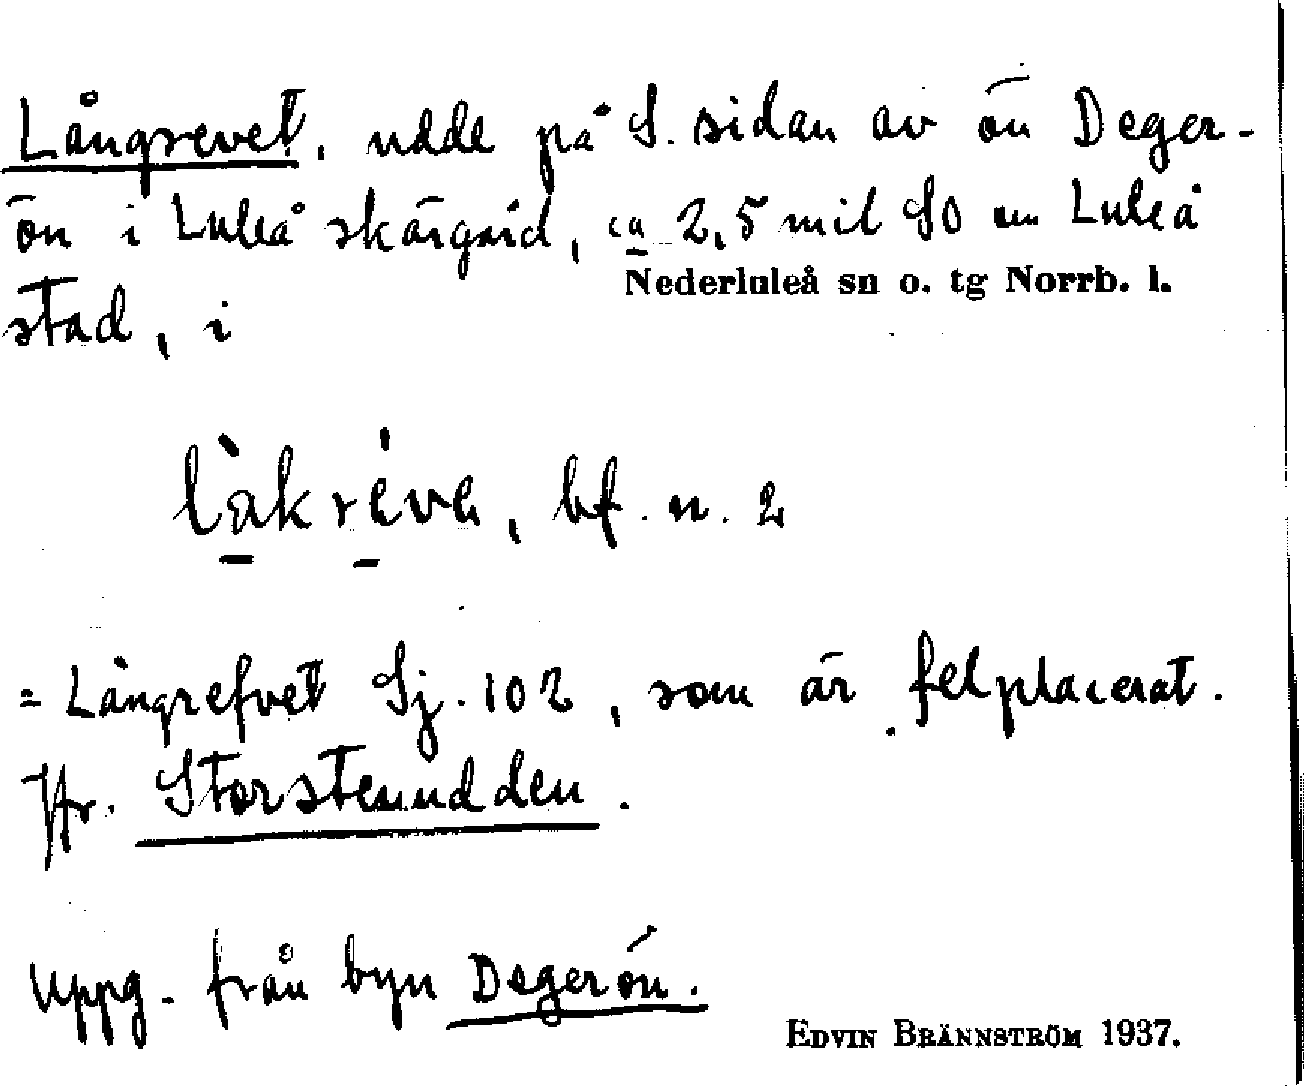 Långrevet, udde på S. sidan av ön Deger-
ön i Luleå skärgård, ca 2,5 mil SO om Luleå
Nederluleå sn o. tg Norrb. l.
stad, i
làkréve, bf. n. 2
= Långrefvet Sj. 102, som är felplacerat.
Jfr. Storstenudden.
Uppg. från byn Degerön.
EDVIN BRÄNNSTRÖM 1937.